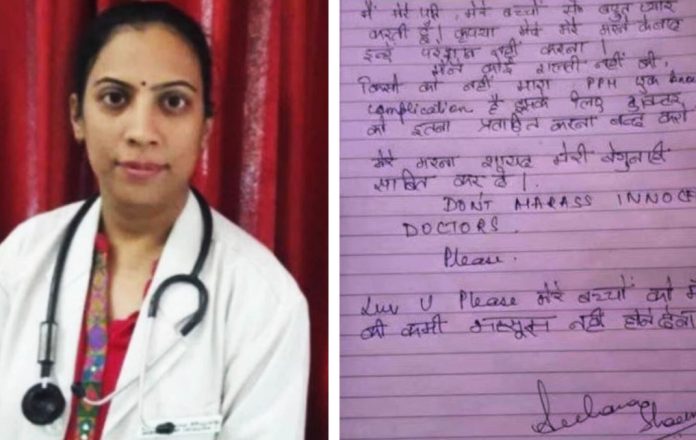 मैं मेरे पति, मेरे बच्चों से बहुत प्यार
करती हूँ। कृपया मेरे मरने के बाद
इन्हें परेशान नहीं करना।
मैंने कोई गलती नहीं की,
किसी को नहीं मारा PPH एक
complication है, इसके लिए डॉक्टर
को इतना प्रताड़ित करना बन्द करो
मेरा मरना शायद मेरी बेगुनाही
साबित कर दे।
DONT HARASS INNOC
DOCTORS.
Please.
Luv U Please मेरे बच्चों को
की कमी महसूस नहीं होने देना